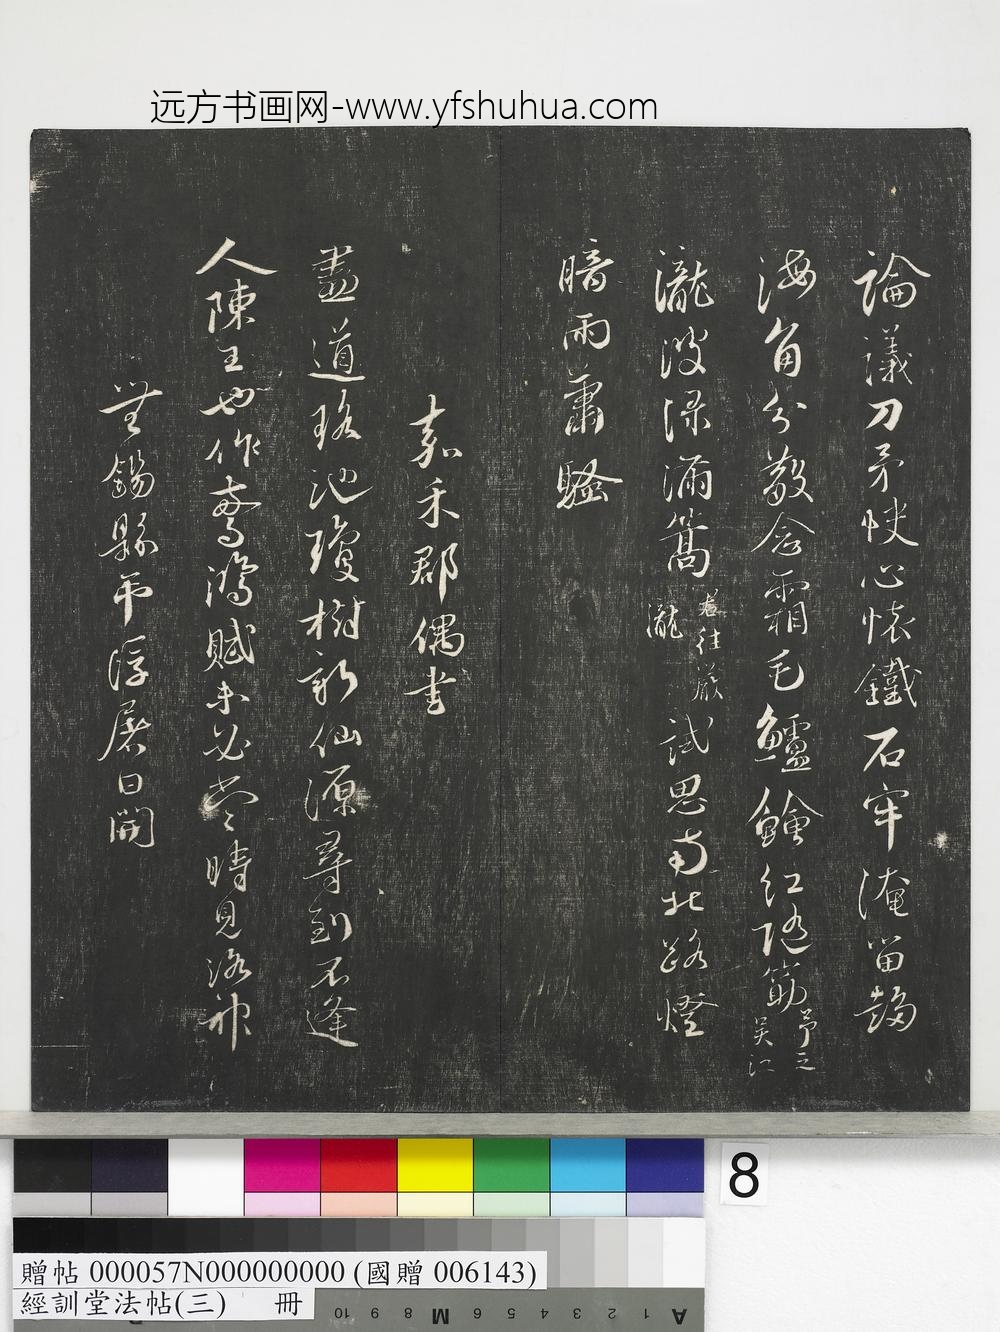 远方书画网-www.yfshuhua.com
論議刀矛快心懷鐵石牢淹留趨
海角分韻念霜毛鱸鱠紅隨筋
予之
吴江
瀧波渌滿篙
君往嚴
瀧
試思南北路燈
暗雨蕭騷
嘉禾郡偶書
盡道瑤池瓊樹新仙源尋到不逢
人陳王也作驚鴻賦未必當時見洛神
無錫縣吊浮屠日開
8
贈帖 000057N000000000 (國贈 006143)
經訓堂法帖(三) 冊
A 1 2 3 4 5 6 M 8 9 10